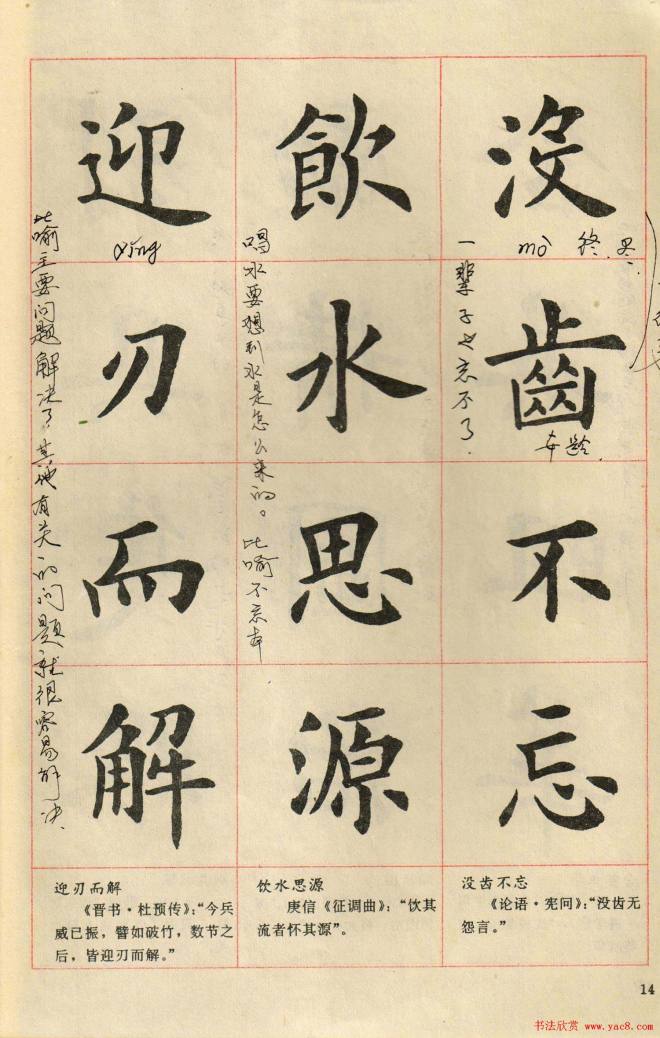 没
齒
不
忘
飲
水
思
源
迎
刃
而
解
mò 终.
一辈子也忘不了.
年龄.
喝水要想到水是怎么来的。比喻不忘本
yíng
比喻主要问题解决了,其他有关的问题就很容易解决.
没齿不忘
《论语·宪问》:“没齿无
怨言。”
饮水思源
庾信《征调曲》:“饮其
流者怀其源”。
迎刃而解
《晋书·杜预传》:“今兵
威已振,譬如破竹,数节之
后,皆迎刃而解。”
14
书法欣赏 www.yac8.com